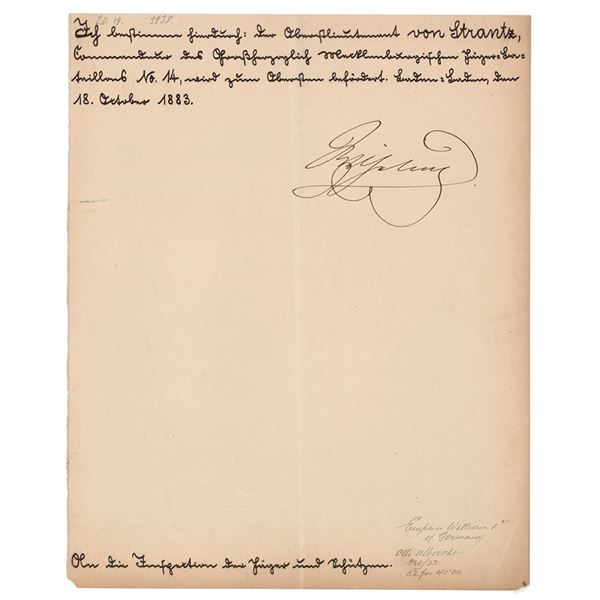 20. 19. 3937.
Ich bestimme hierdurch: der Oberstlieutenant von Strantz,
Commandeur des Großherzoglich Mecklenburgischen Jäger-Ba-
taillons No. 14, wird zum Obersten befördert. Baden-Baden, den
18. October 1883.
Wilhelm
An die Inspection der Jäger und Schützen.
Emperor William 1st
of Germany
Otto Albrecht
52 for 40.00